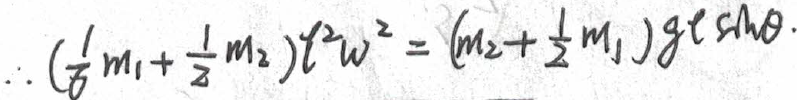 ∴ (1/6 m₁ + 1/2 m₂) l²ω² = (m₂ + 1/2 m₁) gl sinθ.